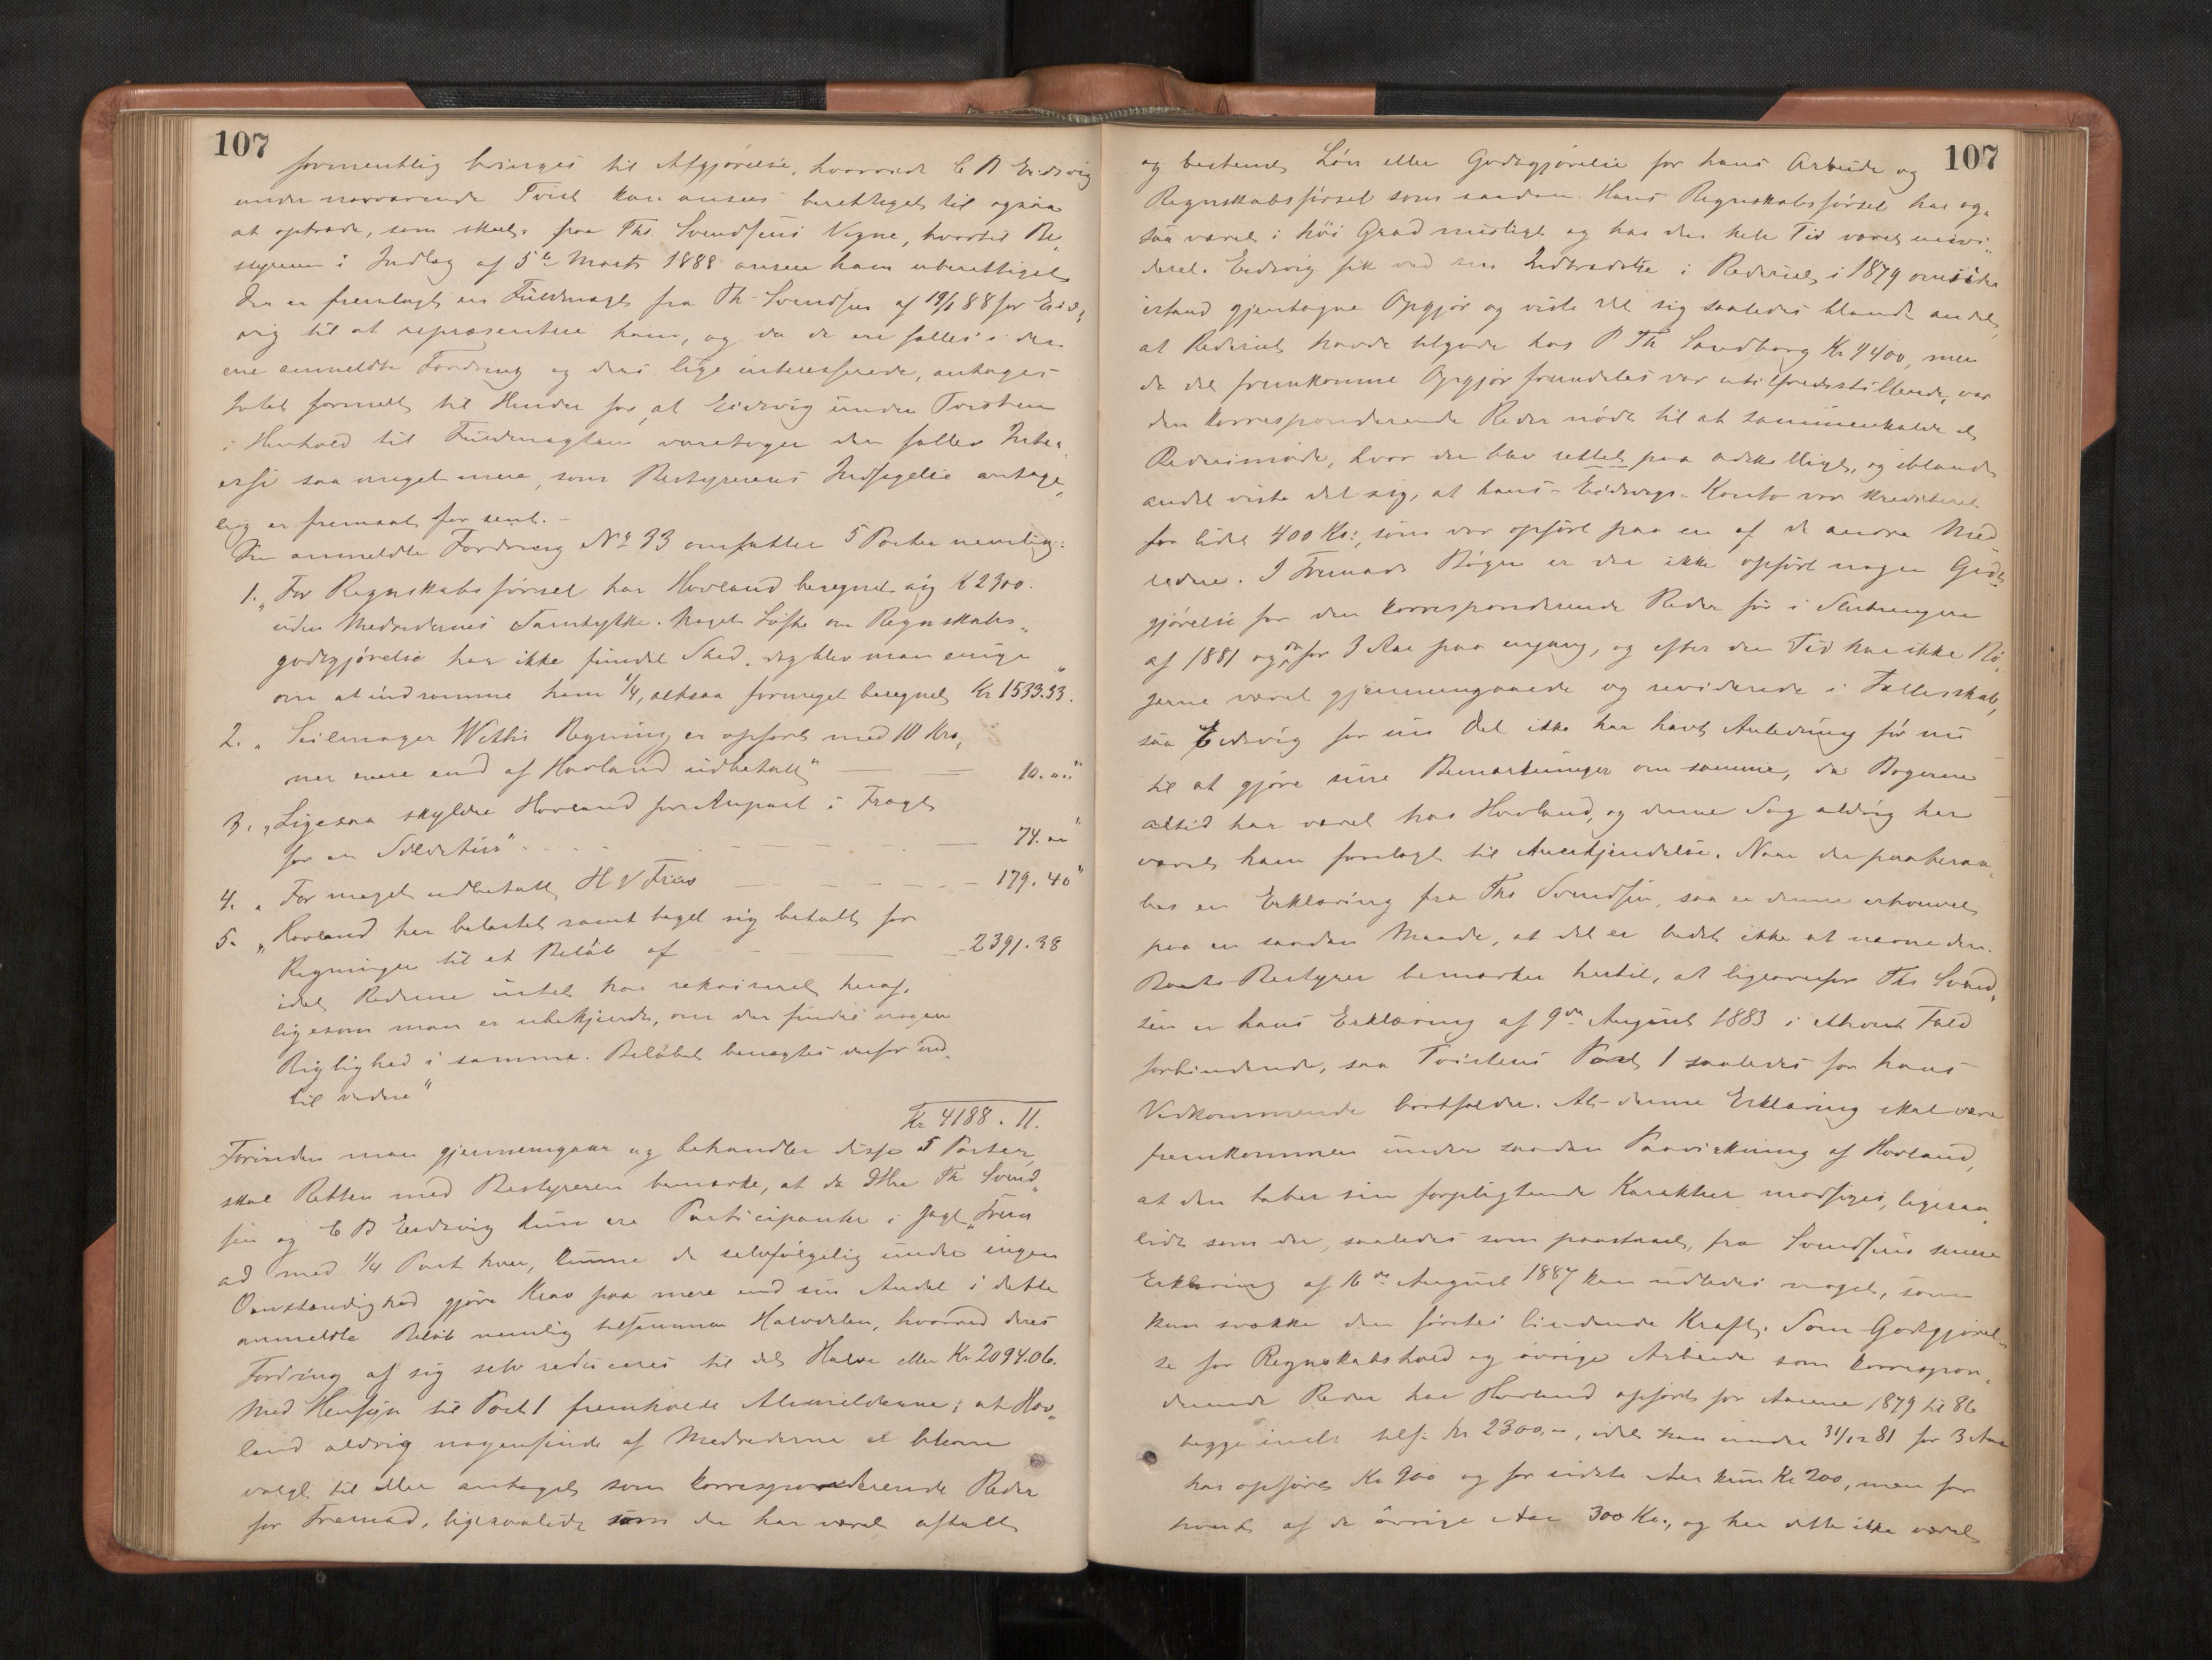 107
formentlig bringes til Afgjørelse, hvorvidt C B Eidsvig
under nærværende Tvist kan ansees berettiget til ogsaa
at optræde, som skeet, paa Ths Svendsens Vegne, hvortil Be„
styreren i Indlæg af 5te Marts 1888 anseer ham uberettiget
Der er fremlagt en Fuldmagt fra Th. Svendsen af 19/1 88 for Eids„
vig til at repræsentere ham, og da de ere fælles i den
ene anmeldte Fordring og deri lige interesserede, antages
Intet formelt til Hinder for, at Eidsvig under Tvisten
i Henhold til Fuldmagten varetager den fælles Inte„
resse saa meget mere, som Bestyrerens Indsigelse antage„
lig er fremsat for sent.
Den anmeldte Fordring No 33 omfatter 5 Poster nemlig:
1. „For Regnskabsførsel har Hovland beregnet sig K 2300.
uden Medredernes Samtykke. Noget Løfte om Regnskabs„
godtgjørelse har ikke fundet Sted, dog blev man enige
om at indrømme ham 1/4, altsaa formeget beregnet Kr 1533.33.
2. „Seilmager Withs Regning er opført med 10 Kro„
ner mere end af Hovland udbetalt" 10.00"
3. „Ligesaa skylder Hovland for Anpart i Fragt
for en Sildetur" 74.00"
4. „For meget udbetalt H V Friis 179.40"
5. „Hovland har belastet samt taget sig betalt for
Regninger til et Beløb af 2391.38
idet Rederne intet har rekvireret heraf,
ligesom man er ubekjendt, om der findes nogen
Rigtighed i samme. Beløbet benægtes derfor ind„
til videre"
Kr 4188.11.
Forinden man gjennemgaar og behandler disse 5 Poster,
skal Retten med Bestyreren bemærke, at da Hr Th Svend„
sen og C B Eidsvig kun ere Participanter i Jagt „Frem
ad med 1/4 Part hver, kunne de selvfølgelig under ingen
Omstændighed gjøre Krav paa mere end sin Andel i dette
anmeldte Beløb nemlig tilsammen Halvdelen, hvorved deres
Fordring af sig selv reduceres til det Halve eller Kr 2094.06.
Med Hensyn til Post 1 fremholde Anmelderne: at Hov„
land aldrig nogensinde af Medrederne er bleven
valgt til eller antaget som korresponderende Reder
for Fremad, ligesaalidt som der har været aftalt
107
og bestemt Løn eller Godtgjørelse for hans Arbeide og
Regnskabsførsel som saadan. Hans Regnskabsførsel har og„
saa været i høi Grad misligt og har den hele Tid været urevi„
deret. Eidsvig fik ved sin Indtrædelse i Rederiet i 1879 omsider
istand gjentagne Opgjør og viste det sig saaledes blandt andet,
at Rederiet havde tilgode hos P Th Sandborg Kr 4400, men
da det fremkomne Opgjør fremdeles var utilfredsstillende, var
den korresponderende Reder nødt til at sammenkalde et
Rederimøde, hvor der blev rettet paa adskilligt, og iblandt
andet viste det sig, at hans - Eidsvigs - Konto var krediteret
for lidet 400 Kr:, som var opført paa en af de andre Med
redere. I Fremads Bøger er der ikke opført nogen Godt„
gjørelse for den korresponderende Reder før i Slutningen
af 1881 og da for 3 Aar paa engang, og efter den Tid har ikke Bø„
gerne været gjennemgaaede og reviderede i Fællesskab,
saa Eidsvig for sin Del ikke har havt Anledning før nu
til at gjøre sine Bemærkninger om samme, da Bøgerne
altid har været hos Hovland, og denne Sag aldrig har
været ham forelagt til Anerkjendelse. Naar der paaberaa„
bes en Erklæring fra Ths Svendsen, saa er denne erhvervet
paa en saadan Maade, at det er bedst ikke at nævne den.
Boets Bestyrer bemærker hertil, at ligeoverfor Ths Svend„
sen er hans Erklæring af 9de August 1883 i ethvert Fald
forbindende, saa Tvistens Post 1 saaledes for hans
Vedkommende bortfalder. At denne Erklæring skal være
fremkommen under saadan Paavirkning af Hovland,
at den taber sin forpligtende Karakter modsiges, ligesaa„
lidt som der, saaledes som paastaaet, fra Svendsens senere
Erklæring af 16de August 1887 kan udledes noget, som
kan svække den førstes bindende Kraft. Som Godtgjørel„
se for Regnskabshold og øvrige Arbeide som korrespon„
derende Reder har Hovland opført for Aarene 1879 til 86
begge incl. tils. Kr 2300,-, idet han under 31/12 81 for 3 Aar
har opført Kr 900 og for sidste Aar kun Kr 200, men for
hvert af de øvrige Aar 300 Kr., og har dette ikke været